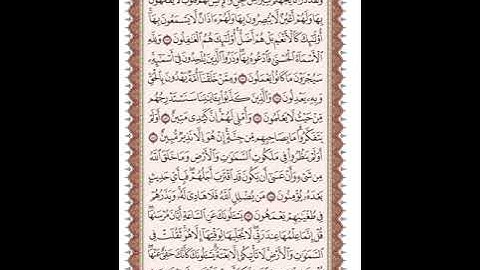 وَلَقَدْ ذَرَأْنَا لِجَهَنَّمَ كَثِيرًا مِّنَ الْجِنِّ وَالْإِنسِ لَهُمْ قُلُوبٌ لَّا يَفْقَهُونَ
بِهَا وَلَهُمْ أَعْيُنٌ لَّا يُبْصِرُونَ بِهَا وَلَهُمْ ءَاذَانٌ لَّا يَسْمَعُونَ بِهَا
أُوْلَٰٓئِكَ كَالْأَنْعَٰمِ بَلْ هُمْ أَضَلُّ أُوْلَٰٓئِكَ هُمُ الْغَٰفِلُونَ ١٧٩ وَلِلَّهِ
الْأَسْمَآءُ الْحُسْنَىٰ فَادْعُوهُ بِهَا وَذَرُوا۟ الَّذِينَ يُلْحِدُونَ فِىٓ أَسْمَٰٓئِهِۦ
سَيُجْزَوْنَ مَا كَانُوا۟ يَعْمَلُونَ ١٨٠ وَمِمَّنْ خَلَقْنَآ أُمَّةٌ يَهْدُونَ بِالْحَقِّ
وَبِهِۦ يَعْدِلُونَ ١٨١ وَالَّذِينَ كَذَّبُوا۟ بِـَٔايَٰتِنَا سَنَسْتَدْرِجُهُم
مِّنْ حَيْثُ لَا يَعْلَمُونَ ١٨٢ وَأُمْلِى لَهُمْ إِنَّ كَيْدِى مَتِينٌ ١٨٣ أَوَلَمْ
يَتَفَكَّرُوا۟ مَا بِصَاحِبِهِم مِّن جِنَّةٍ إِنْ هُوَ إِلَّا نَذِيرٌ مُّبِينٌ ١٨٤
أَوَلَمْ يَنظُرُوا۟ فِى مَلَكُوتِ السَّمَٰوَٰتِ وَالْأَرْضِ وَمَا خَلَقَ اللَّهُ
مِن شَىْءٍ وَأَنْ عَسَىٰٓ أَن يَكُونَ قَدِ اقْتَرَبَ أَجَلُهُمْ فَبِأَىِّ حَدِيثٍ
بَعْدَهُۥ يُؤْمِنُونَ ١٨٥ مَن يُضْلِلِ اللَّهُ فَلَا هَادِىَ لَهُۥ وَيَذَرُهُمْ
فِى طُغْيَٰنِهِمْ يَعْمَهُونَ ١٨٦ يَسْـَٔلُونَكَ عَنِ السَّاعَةِ أَيَّانَ مُرْسَىٰهَا
قُلْ إِنَّمَا عِلْمُهَا عِندَ رَبِّى لَا يُجَلِّيهَا لِوَقْتِهَآ إِلَّا هُوَ ثَقُلَتْ فِى
السَّمَٰوَٰتِ وَالْأَرْضِ لَا تَأْتِيكُمْ إِلَّا بَغْتَةً يَسْـَٔلُونَكَ كَأَنَّكَ حَفِىٌّ عَنْهَا